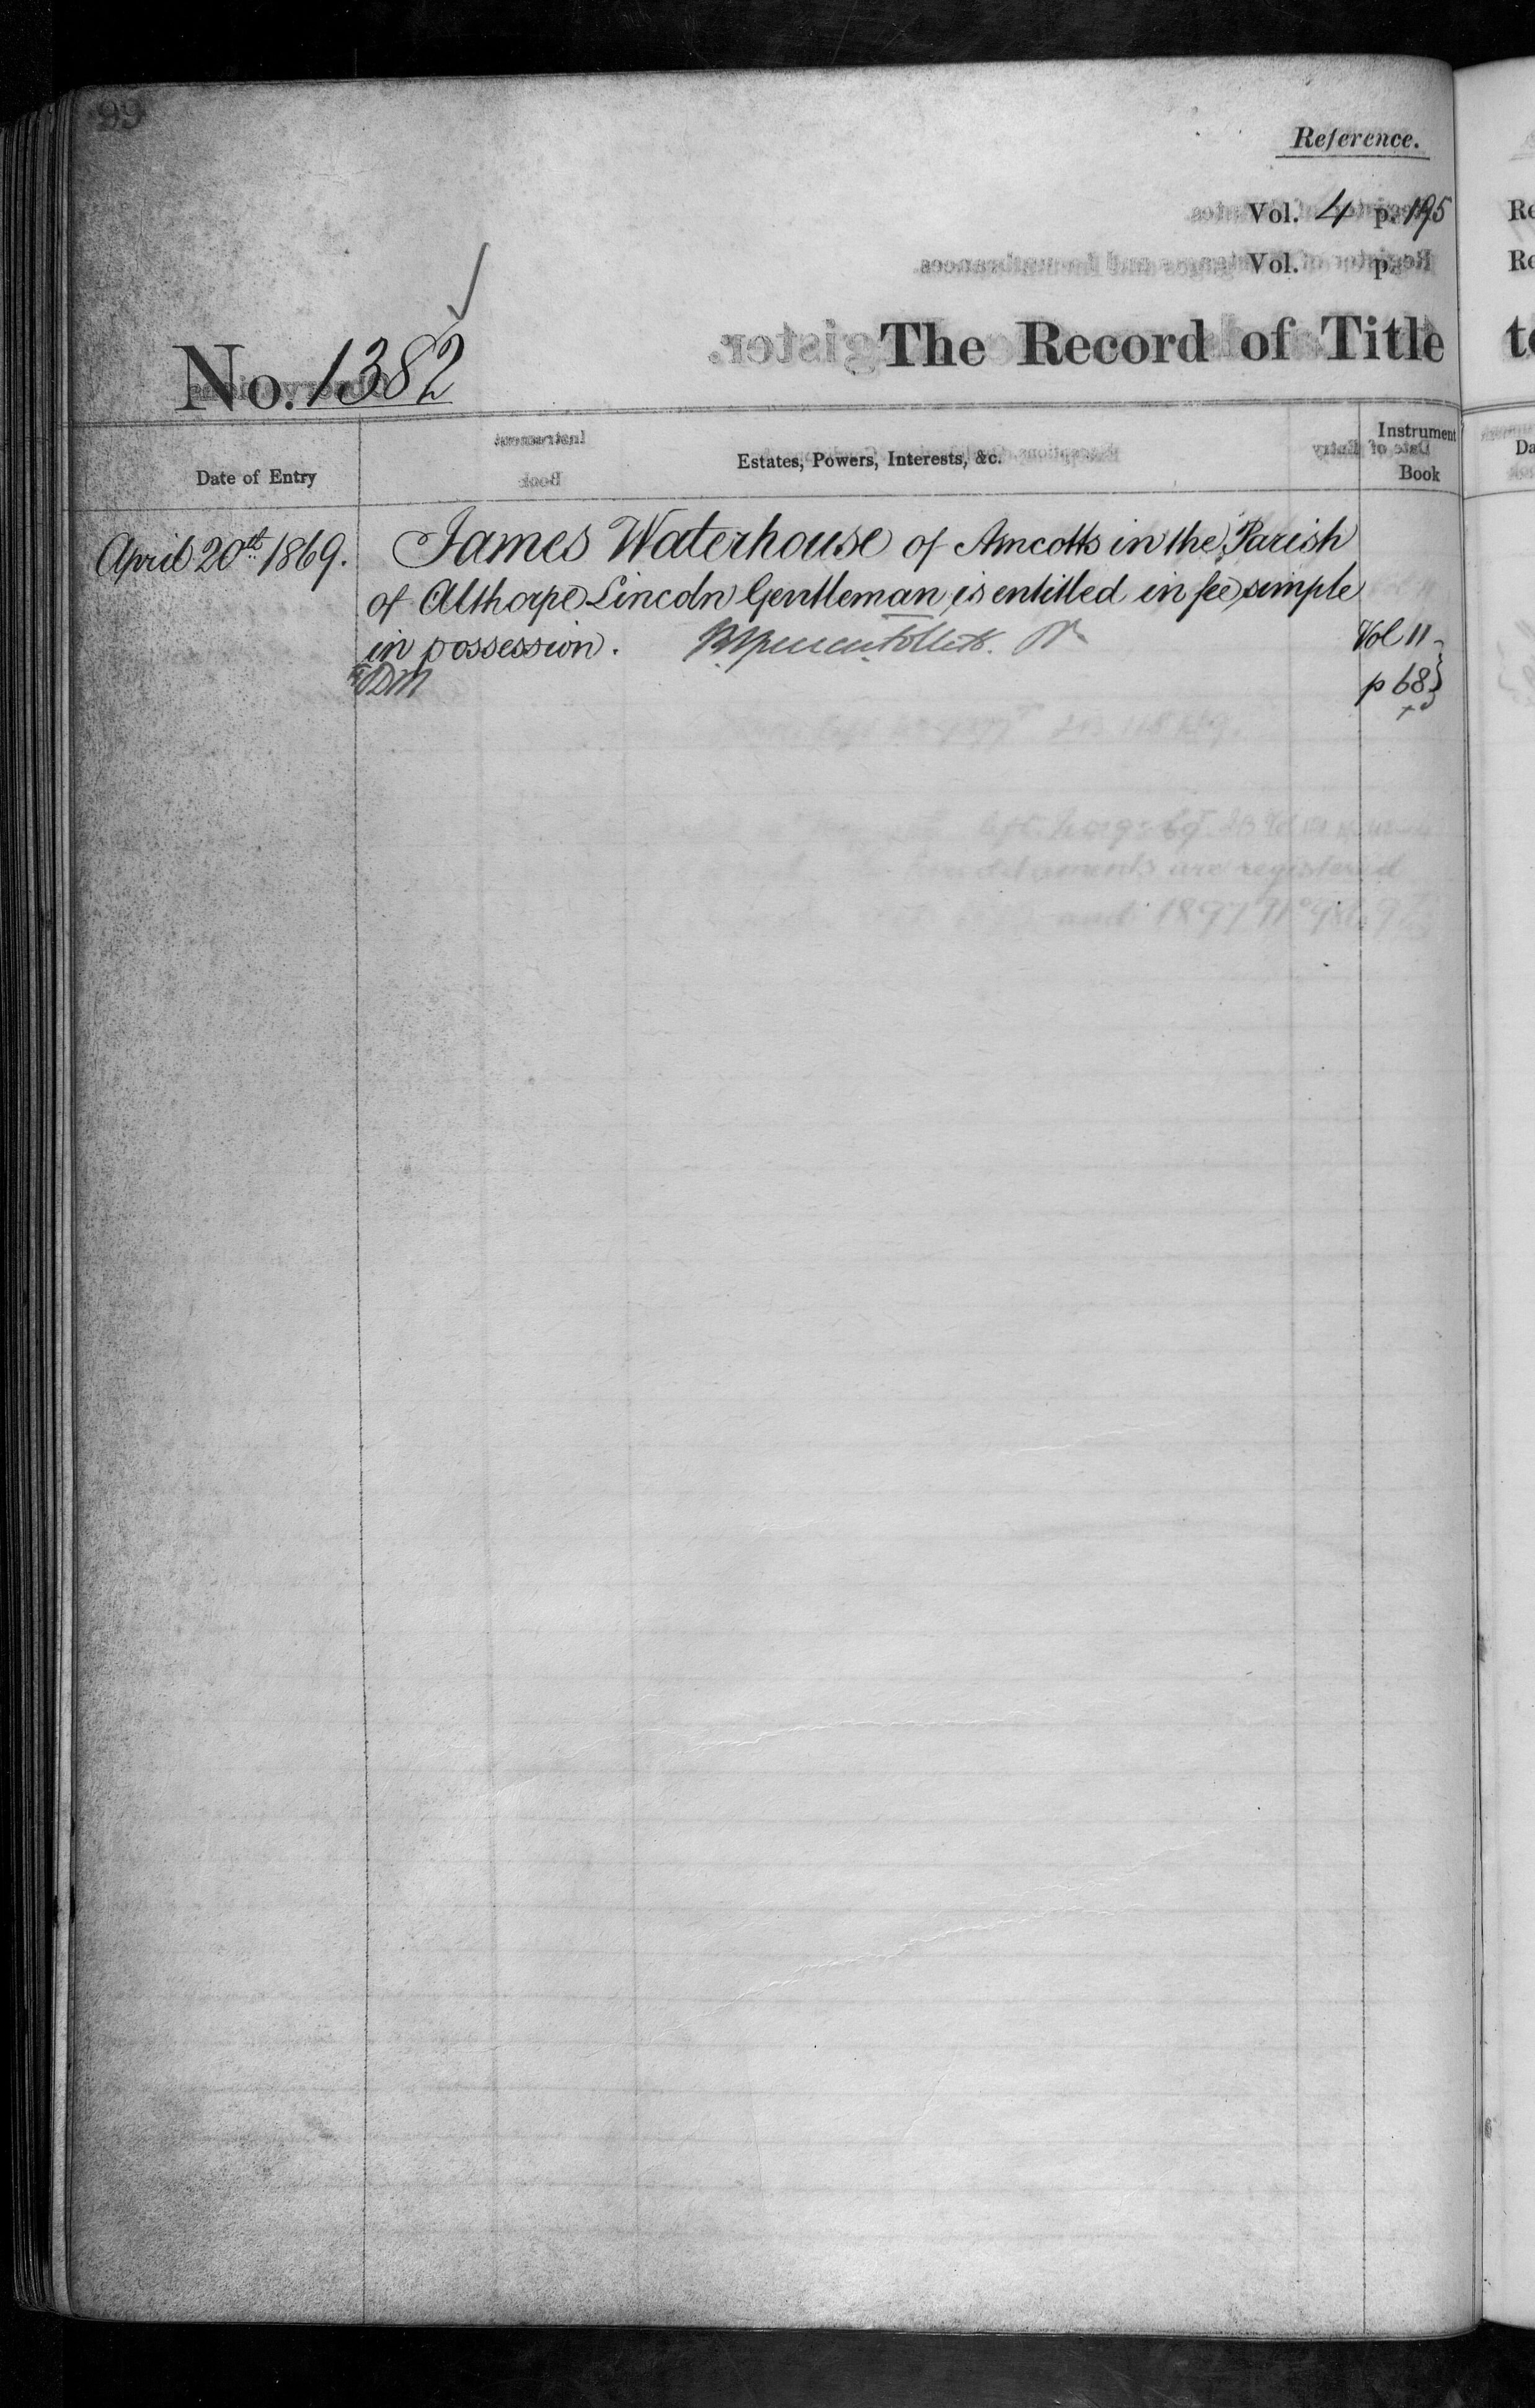 99
Reference.
Vol. 4 p. 195
Vol. p.
The Record of Title
No. 1382
Date of Entry
Estates, Powers, Interests, &c.
Instrument
Book
April 20th 1869.
James Waterhouse of Amcotts in the Parish
of Althorpe Lincoln Gentleman is entitled in fee simple
in possession.
Vol 11
p 68